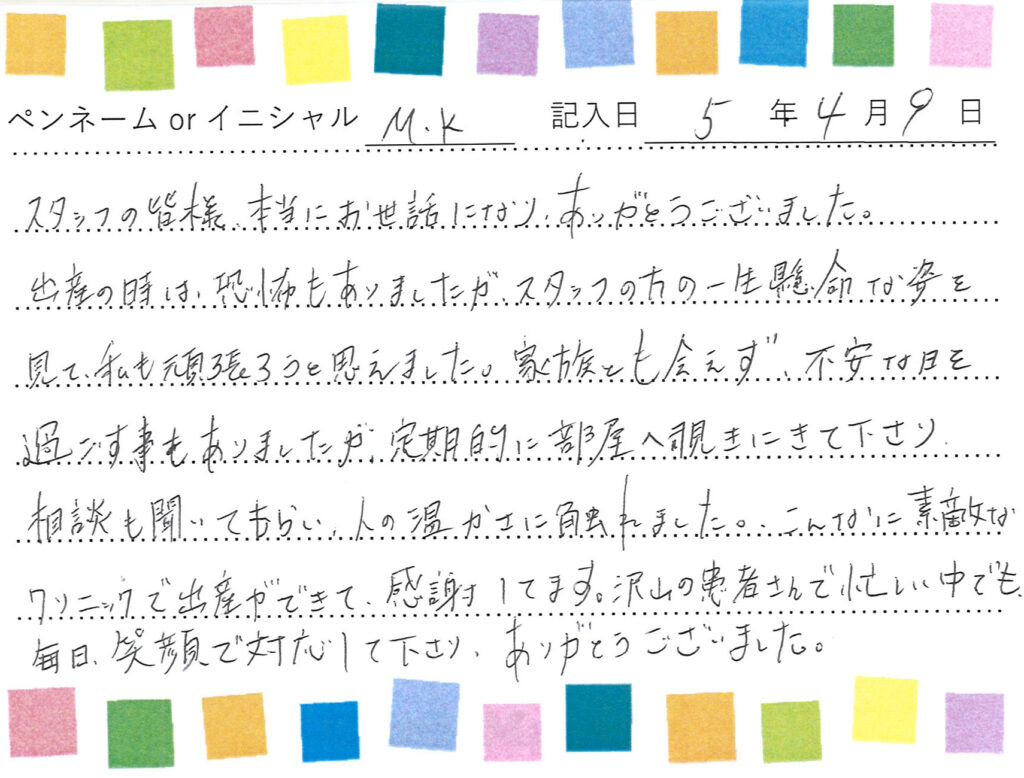 ペンネーム or イニシャル M.K 記入日 5年4月9日
スタッフの皆様、本当にお世話になり、ありがとうございました。
出産の時は、恐怖もありましたが、スタッフの方の一生懸命な姿を
見て、私も頑張ろうと思えました。家族とも会えず、不安な日を
過ごす事もありましたが、定期的に部屋へ覗きにきて下さり、
相談も聞いてもらい、人の温かさに触れました。こんなに素敵な
クリニックで出産ができて、感謝してます。沢山の患者さんで忙しい中でも、
毎日、笑顔で対応して下さり、ありがとうございました。